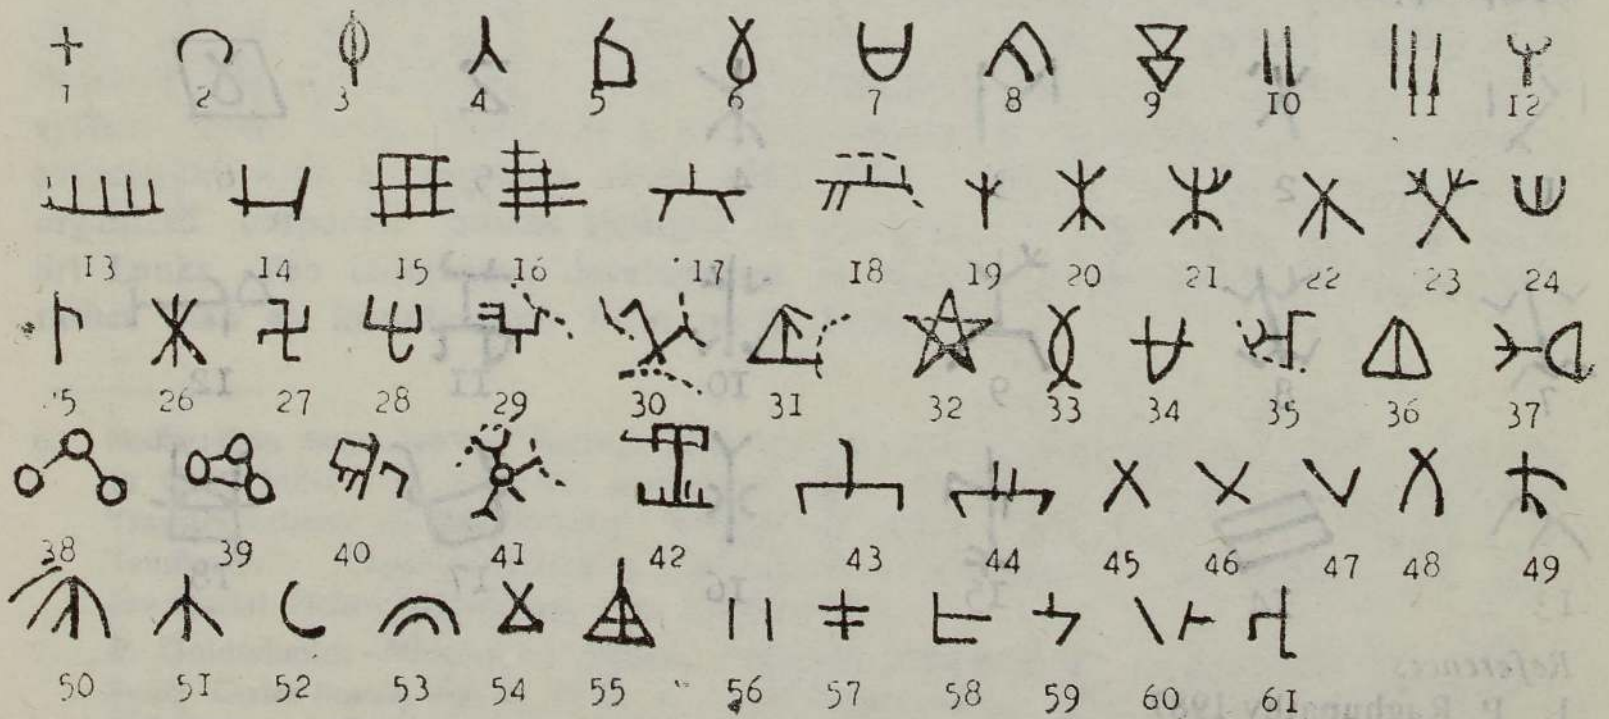 1 2 3 4 5 6 7 8 9 10 11 12
13 14 15 16 17 18 19 20 21 22 23 24
25 26 27 28 29 30 31 32 33 34 35 36 37
38 39 40 41 42 43 44 45 46 47 48 49
50 51 52 53 54 55 56 57 58 59 60 61